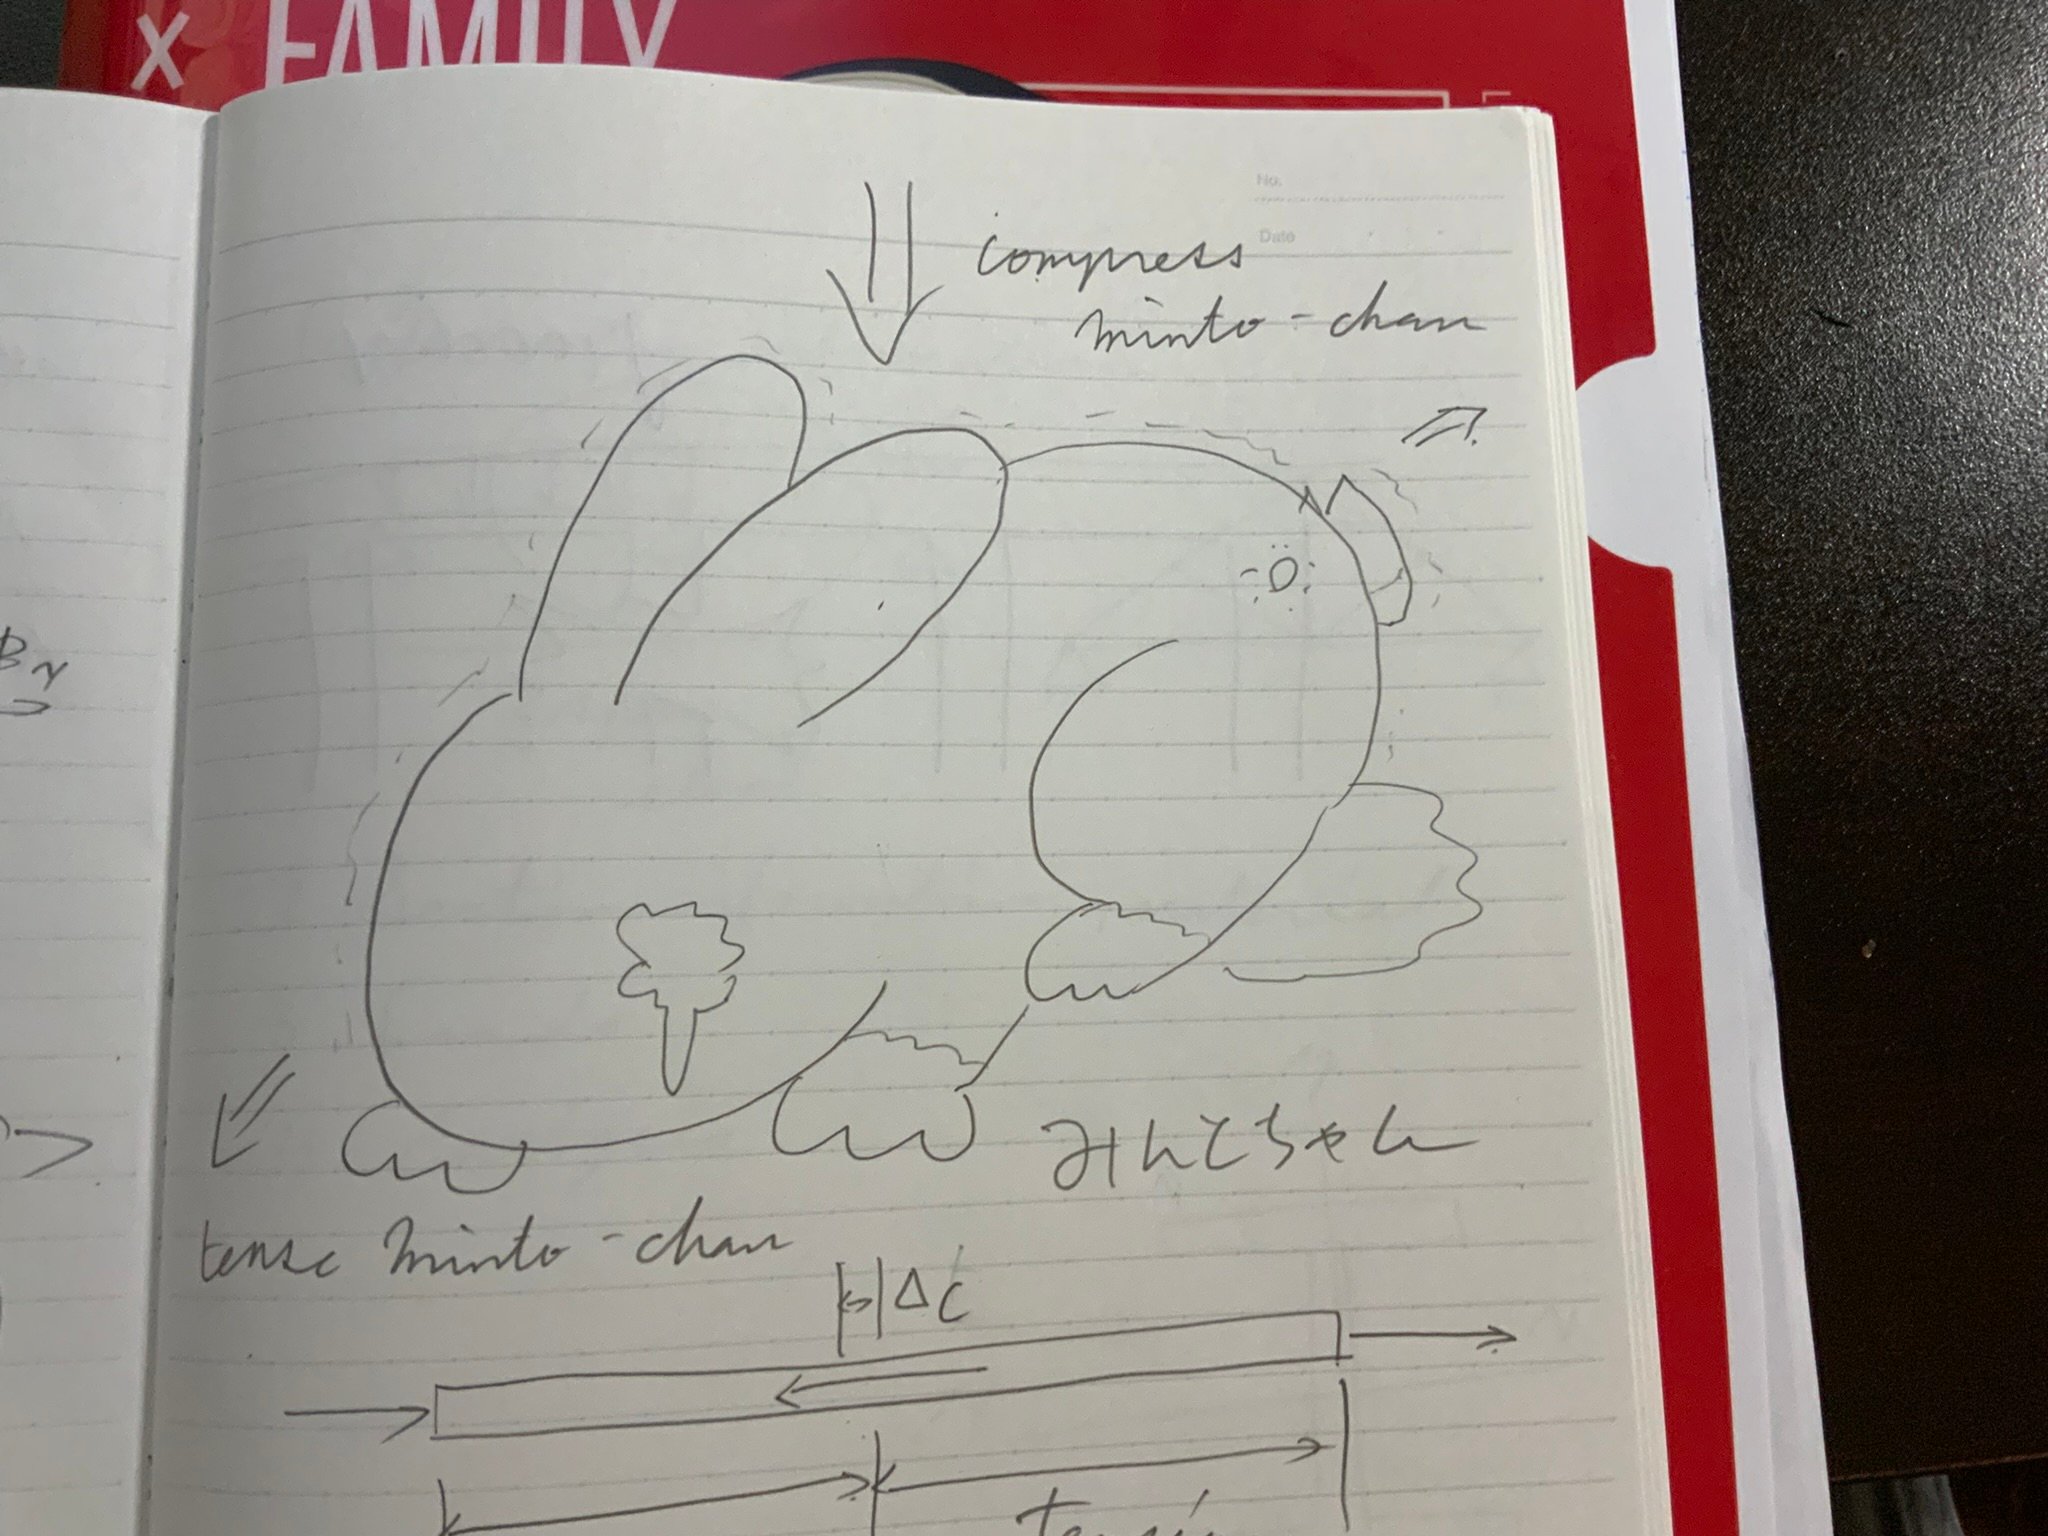 X FAMILY
No.
Date
compress
minto-chan
Br
みんとちゃん
tense minto-chan
Δl